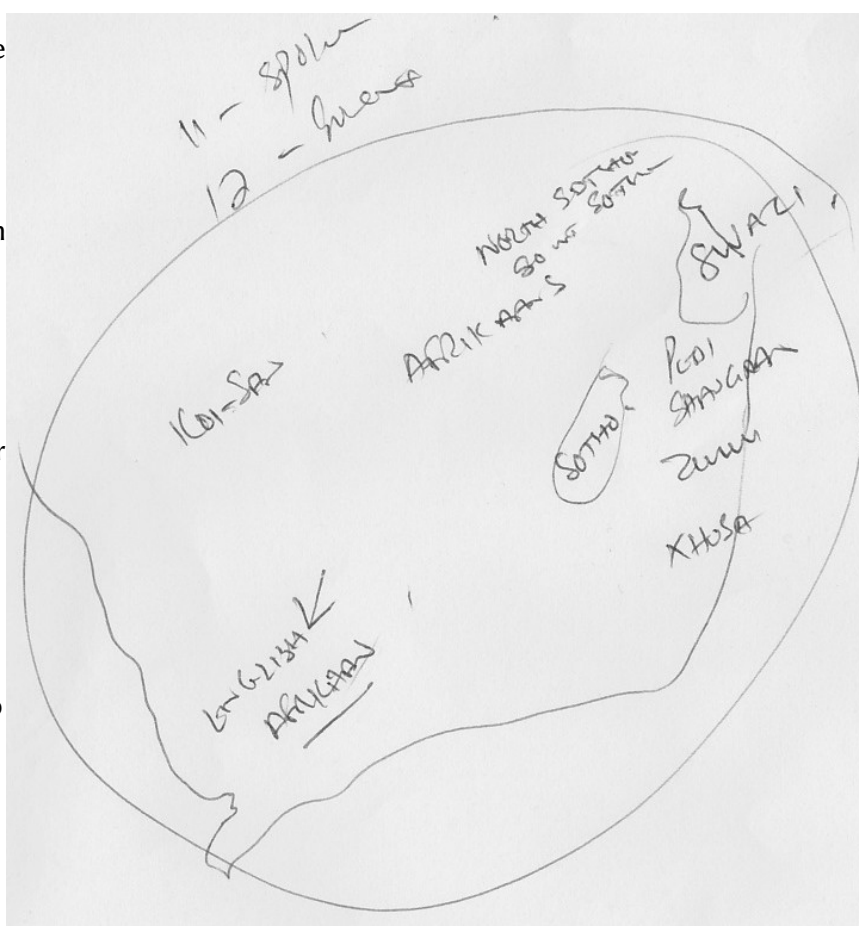 11 - Spoken
12 -
NORTH SOTHO
SOUTH SOTHO
AFRIKAANS
SWAZI
KOI-SAN
PEDI
SHANGAAN
SOTHO
ZULU
XHOSA
ENGLISH
AFRIKAAN